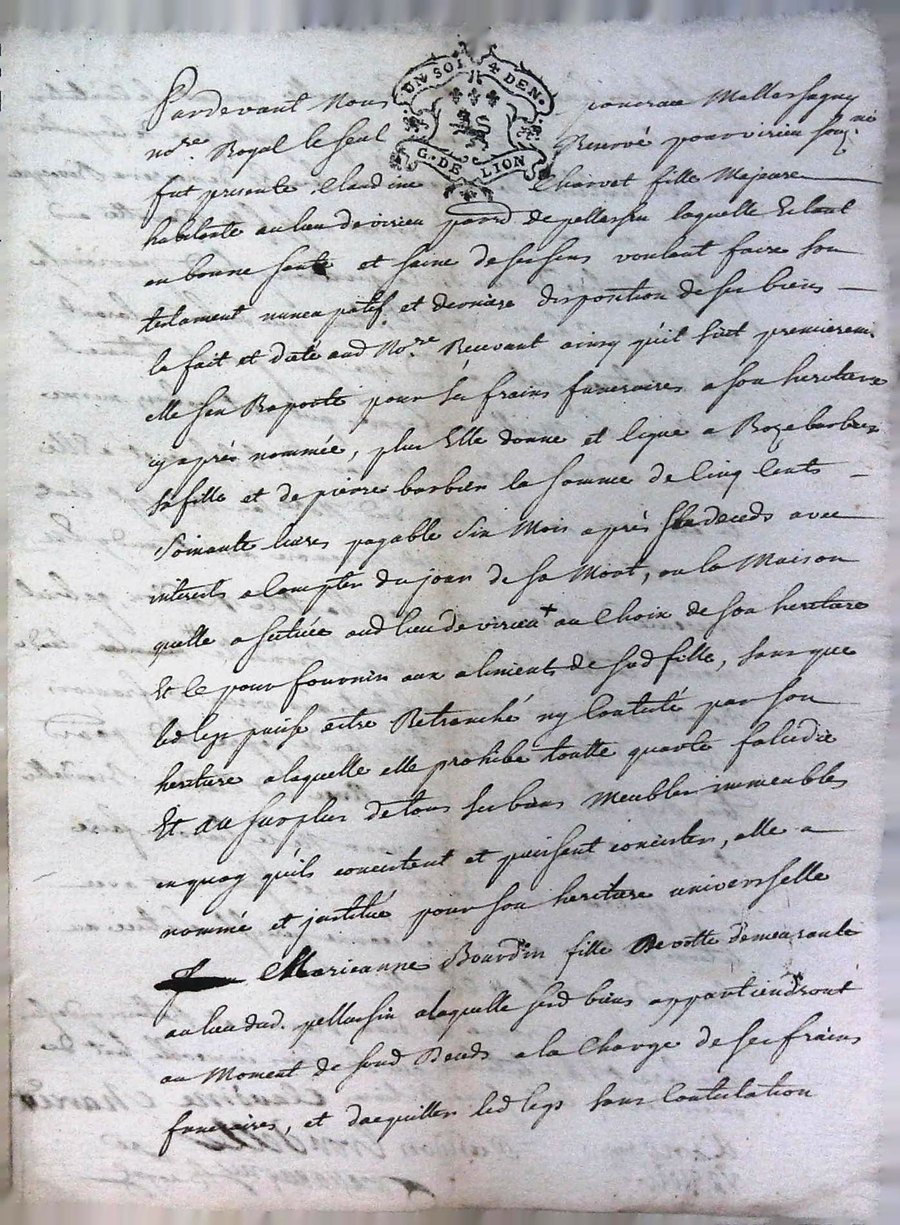 UN SOL 4 DEN.
G. DE LION
Pardevant Nous
no.re Royal le seul Reservé pour virieu sous.né
fut presente Claudine Charvet fille Majeure
habitante au lieu de virieu parr.d de pellassin laquelle Etant
en bonne santé et saine de ses sens voulant faire son
testament nuncupatif et derniere disposition de ses biens
la fait et dicté aud No.re Recevant ainsy qu'il suit premierem.t
elle s'en Raporte pour ses frains funeraires a son heritiere
cy après nommée, plus Elle donne et legue a Roze barbier
sa fille et de pierre barbier la somme de Cinq Cents
Soixante livres payable Six Mois après son deceds avec
interests a Compter du jour de sa Mort, ou la Maison
quelle a scituée aud lieu de virieu + au Choix de son heritiere
Et ce pour fournir aux aliments de sad fille, sans que
led legs puisse estre Retranché ny Contesté par son
heritiere a laquelle elle prohibe toutte quarte falcidie
Et au surplus de tous ses biens Meubles immeubles
en quoy qu'ils consistent et puissent consister, elle a
nommé et institué pour son heritiere universelle
Marianne Bourdin fille Devotte demeurante
au lieu dud. pellussin a laquelle sesd biens appartiendront
au Moment de sond Deceds a la Charge de ses frains
funeraires, et dacquitter led legs sans Contestation